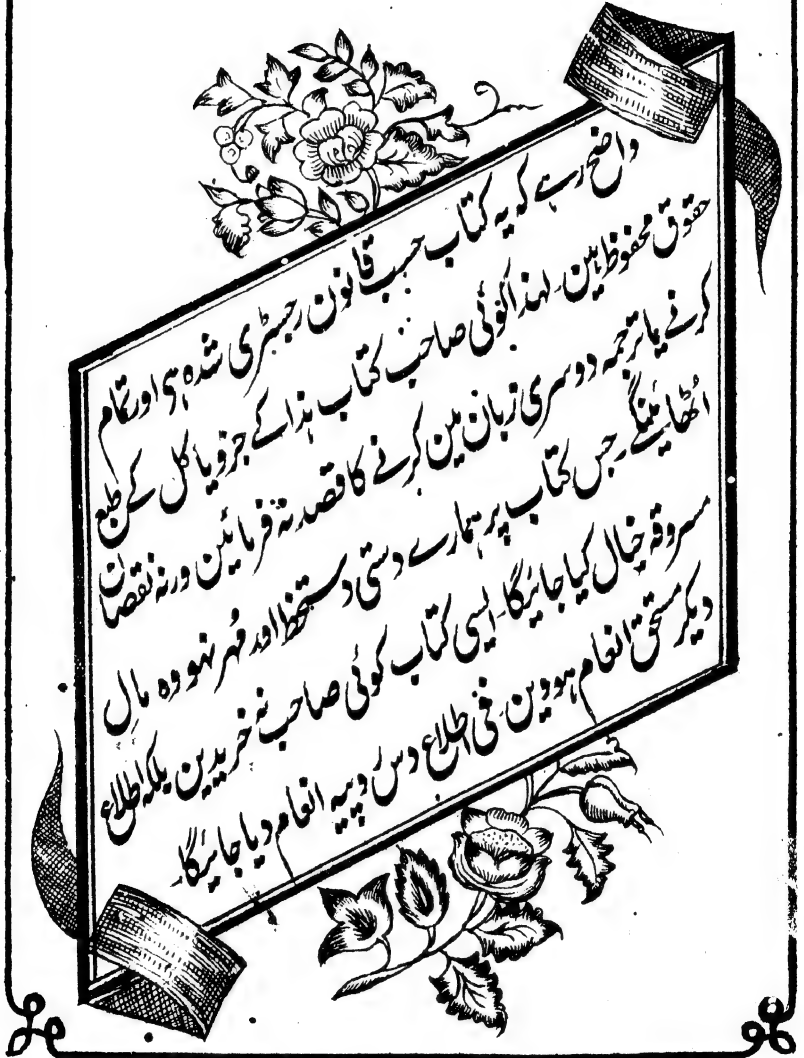 واضح رہے کہ یہ کتاب حسب قانون رجسٹری شدہ ہی اور تمام
حقوق محفوظ ہین۔ لہذا کوئی صاحب کتاب ہذا کے جزو یا کل کے طبع
کرنے یا ترجمہ دوسری زبان مین کرنے کا قصد نہ فرمائین ورنہ نقصان
اُٹھائینگے۔ جس کتاب پر ہمارے دستی دستخط اور مُہر نہو وہ مالِ
مسروقہ خیال کیا جائیگا۔ ایسی کتاب کوئی صاحب نہ خریدین بلکہ اطلاع
دیکر مستحق انعام ہووین۔ فی اطلاع دس روپیہ انعام دیا جائیگا۔